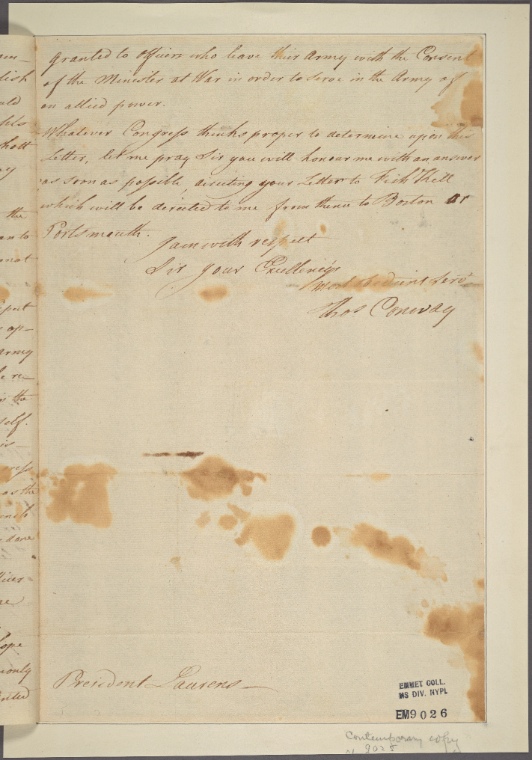 granted to Officers who leave their Army with the Consent
of the Minister at War in order to serve in the Army of
an allied power.
Whatever Congress thinks proper to determine upon this
Letter, let me pray Sir you will honour me with an answer
as soon as possible, directing your Letter to Fish Kill
which will be directed to me from thence to Boston or
Portsmouth.
I am with respect
Sir Your Excellency's
most obedient Serv
Thos Conway
President Laurens
EMMET COLL.
MS DIV. NYPL
EM9026
Contemporary copy
the
army
the
self.
as the
only